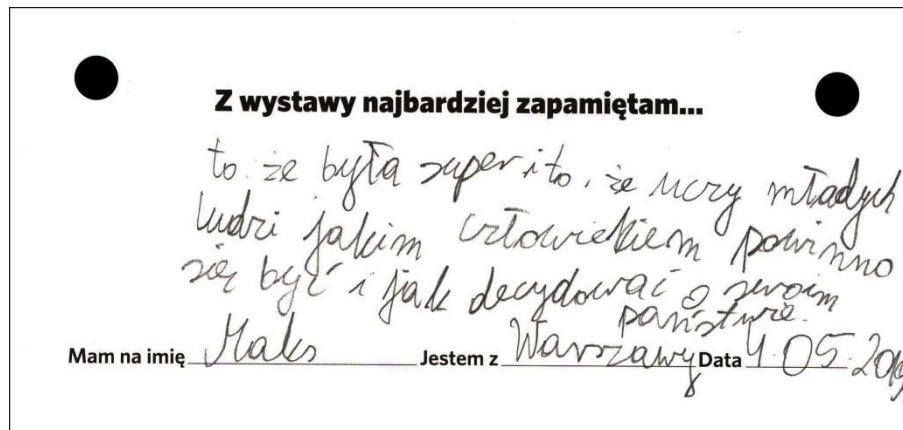 Z wystawy najbardziej zapamiętam...
to że była super i to, że uczy młodych
ludzi jakim człowiekiem powinno
się być i jak decydować o swoim
państwie.
Mam na imię Maks Jestem z Warszawy Data 4.05.